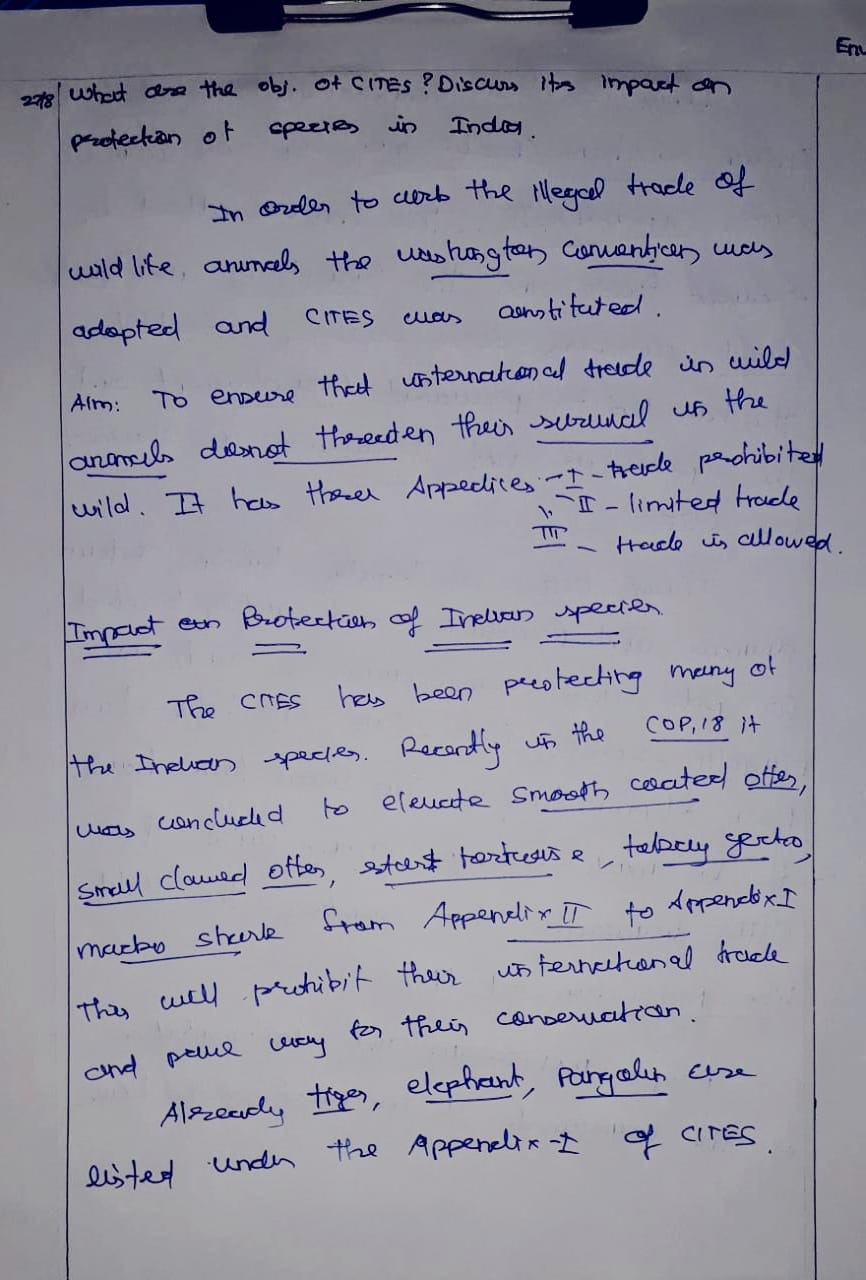 Env
278) What are the obj. of CITES? Discuss its impact on
protection of species in India.
In order to curb the illegal trade of
wild life animals the Washington Convention was
adopted and CITES was constituted.
Aim: To ensure that international trade in wild
animals doesnot threaten their survival in the
wild. It has three Appedices - I - trade prohibited
II - limited trade
III - trade is allowed.
Impact on Protection of Indian species
The CITES has been protecting many of
the Indian species. Recently in the COP,18 it
was concluded to elevate smooth coated otter,
small clawed otter, start tortoise, tokay gecko,
macko shark from Appendix II to Appendix I
This will prohibit their international trade
and pave way for their conservation.
Already tiger, elephant, Pangolin are
listed under the Appendix-I of CITES.